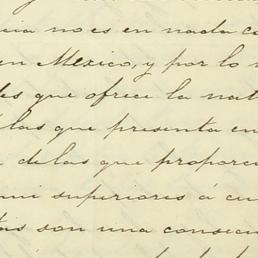 cia no es en nada co
en Mexico, y por lo
des que ofrece la nat
las que presenta en
de las que proporci
mi superiores á cu
son una consecu